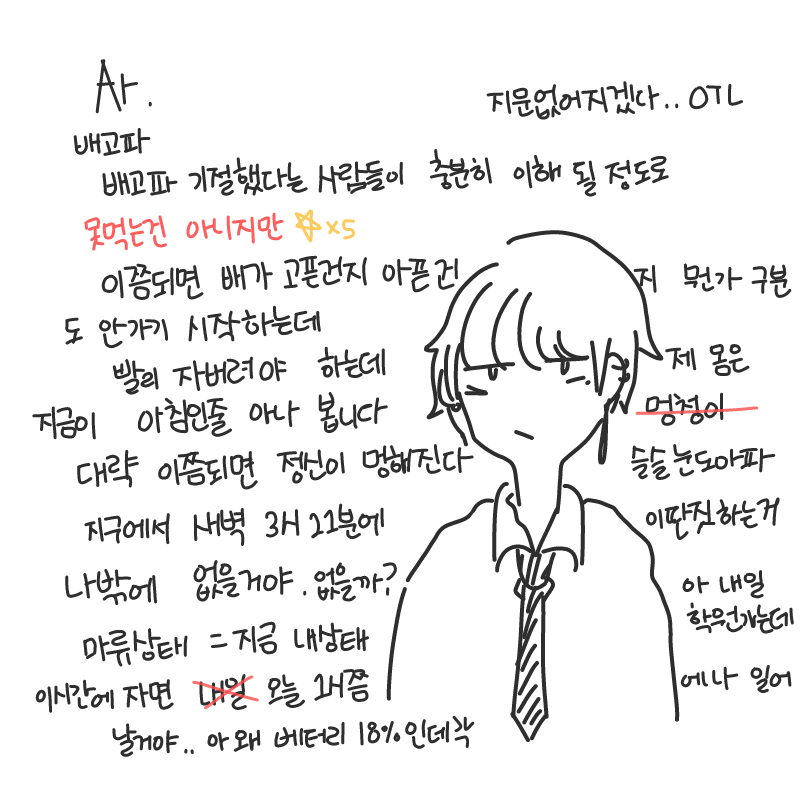 Ar.
지문없어지겠다.. OTL
배고파
배고파 기절했다는 사람들이 충분히 이해 될 정도로
못먹는건 아니지만 ☆×5
이쯤되면 배가 고픈건지 아픈건지 뭔가 구분
도 안가기 시작하는데
빨리 자버려야 하는데 제 몸은
지금이 아침인줄 아나 봅니다 멍청이
대략 이쯤되면 정신이 멍해진다 슬슬 눈도아파
지구에서 새벽 3시 21분에 이딴짓하는거
나밖에 없을거야. 없을까? 아 내일
학원가는데
마류상태 = 지금 내상태
이시간에 자면 내일 오늘 1시쯤에나 일어
날거야.. 아 왜 베터리 18%인데악